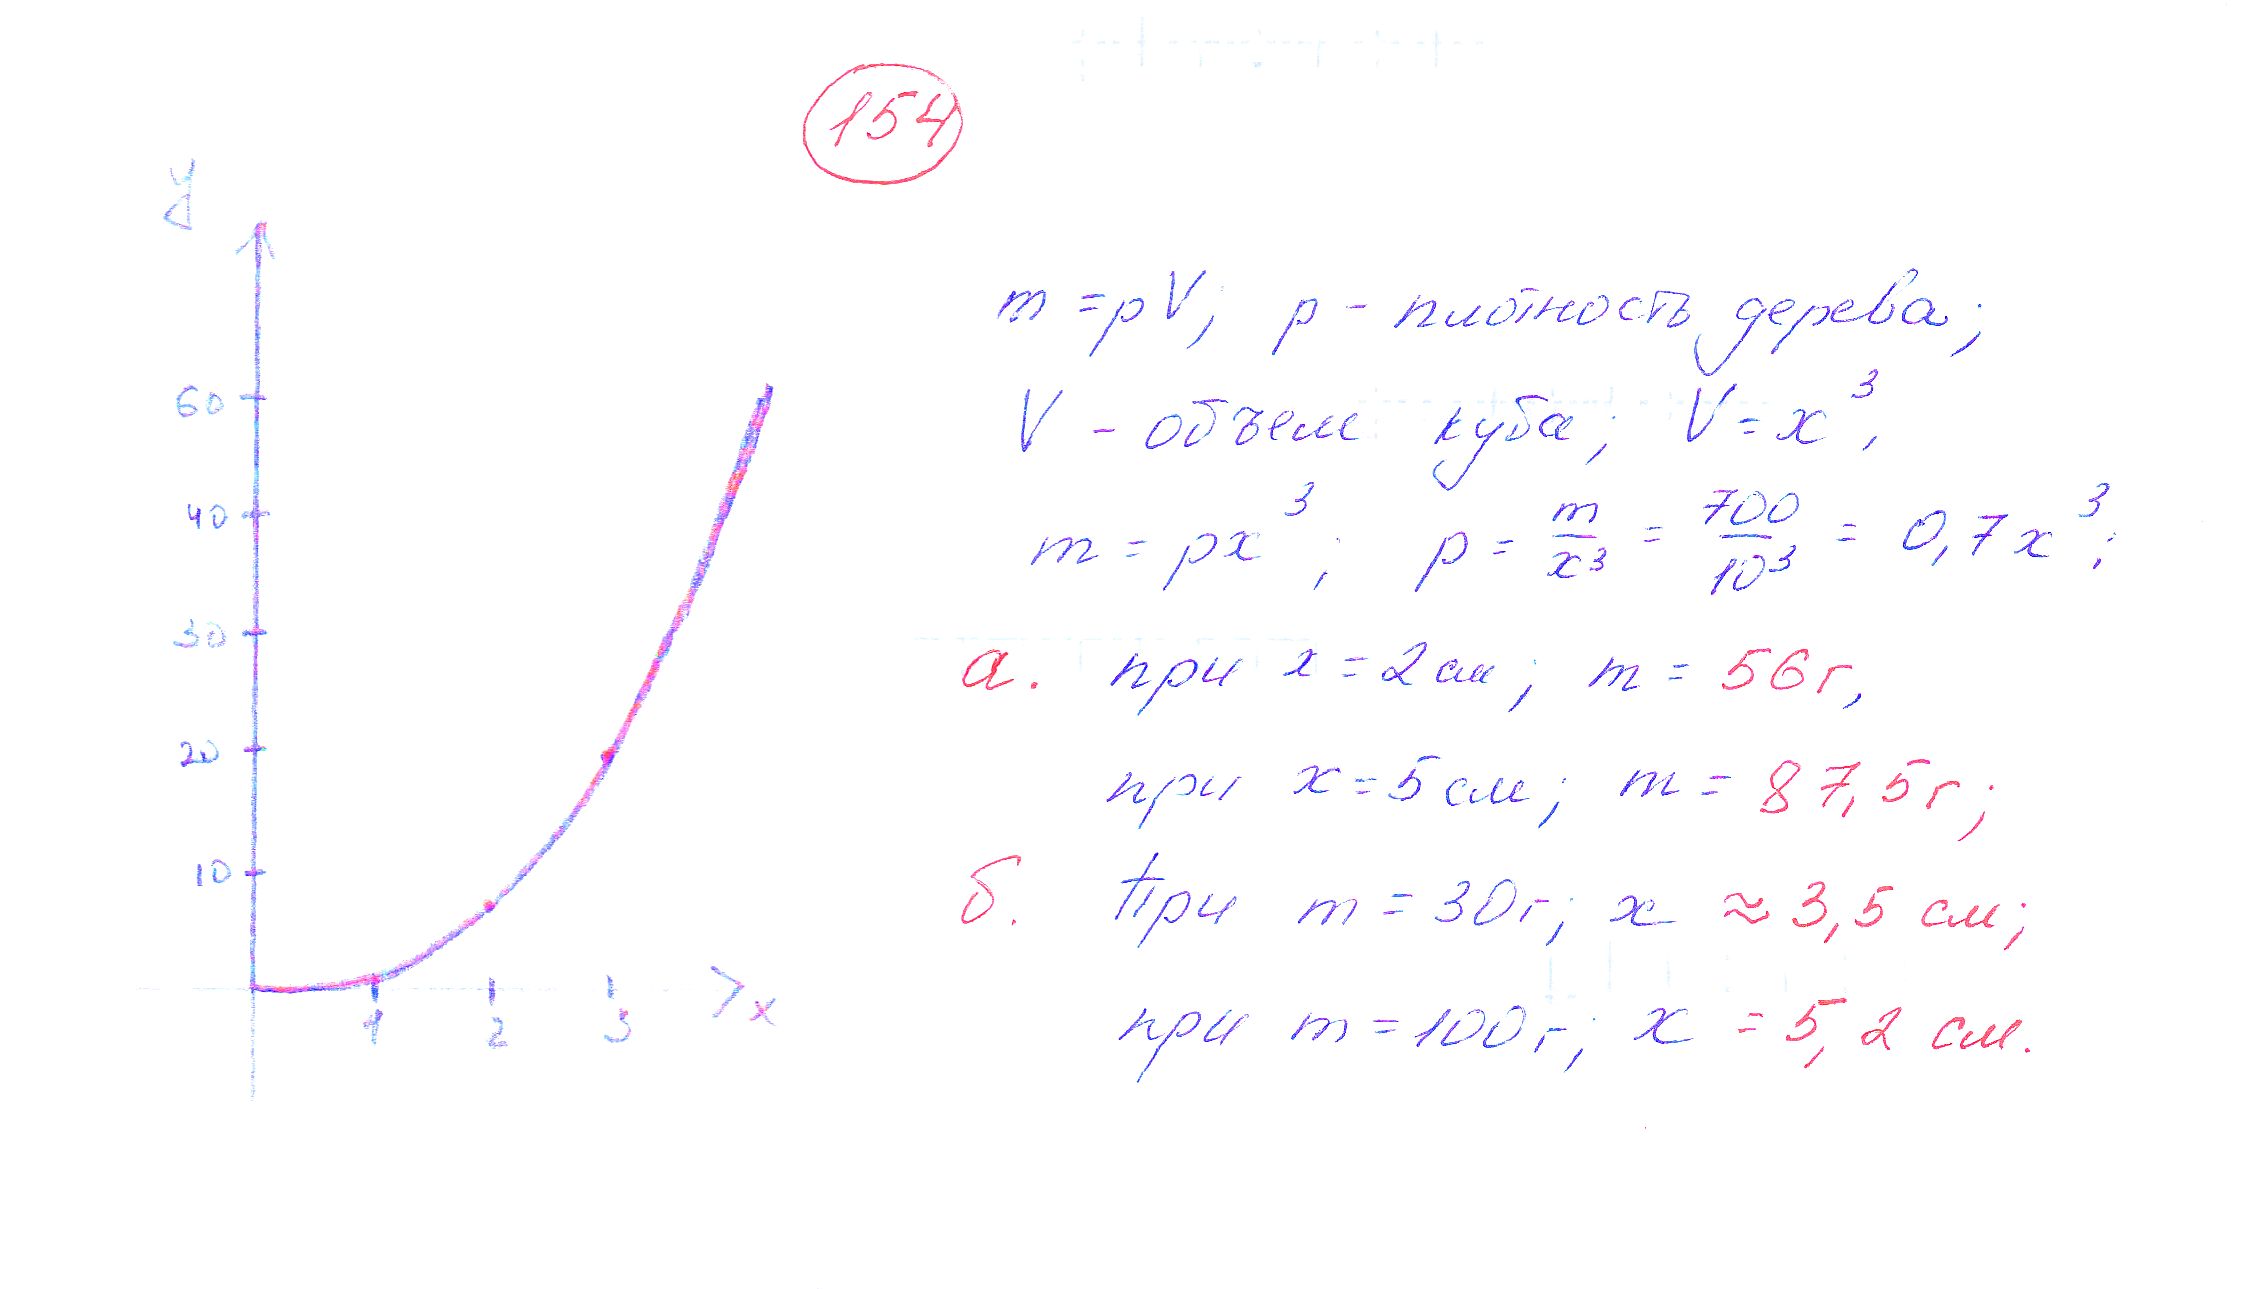 154
y
60
40
30
20
10
1 2 3 x
m = pV; p - плотность дерева;
V - объем куба; V = x³,
m = px³; p = m/x³ = 700/10³ = 0,7x³;
а. при x = 2см; m = 56г,
при x = 5см; m = 87,5г;
б. При m = 30г; x ≈ 3,5 см;
при m = 100г; x = 5,2 см.